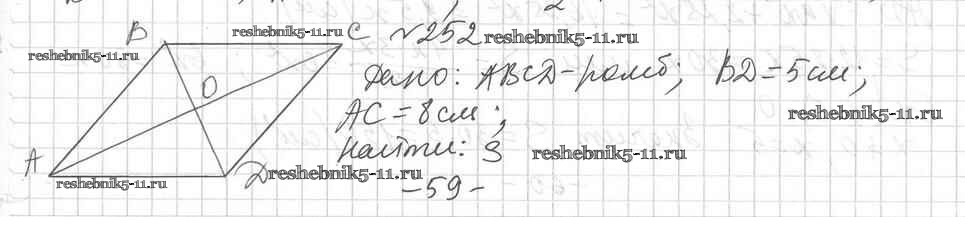 B C №252 reshebnik5-11.ru
reshebnik5-11.ru reshebnik5-11.ru
O Дано: ABCD-ромб; BD=5см;
AC=8см; reshebnik5-11.ru
A Найти: S reshebnik5-11.ru
D reshebnik5-11.ru
reshebnik5-11.ru -59-